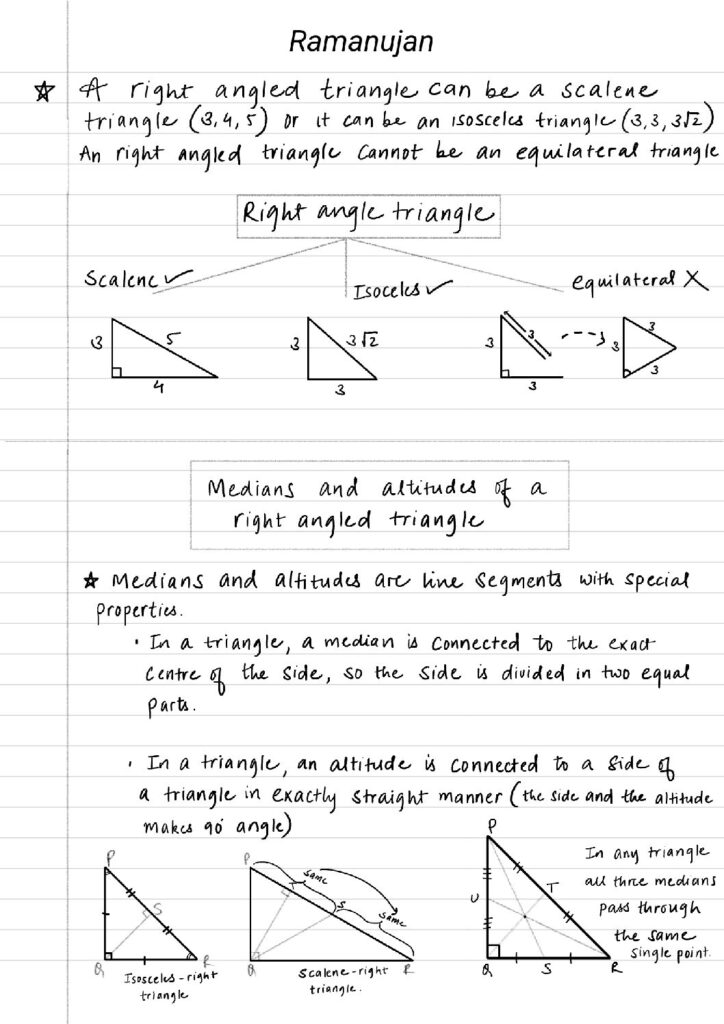 Ramanujan
☆ A right angled triangle can be a scalene
triangle (3,4,5) or it can be an isosceles triangle (3,3,3√2)
An right angled triangle cannot be an equilateral triangle
Right angle triangle
Scalene ✓
Isoceles ✓
equilateral X
3
5
4
3
3√2
3
3
3
3
3
3
3
Medians and altitudes of a
right angled triangle
☆ Medians and altitudes are line segments with special
properties.
• In a triangle, a median is connected to the exact
centre of the side, so the side is divided in two equal
parts.
• In a triangle, an altitude is connected to a side of
a triangle in exactly straight manner (the side and the altitude
makes 90° angle)
P
S
Q
R
Isosceles-right
triangle
P
same
S
same
Q
R
Scalene-right
triangle.
P
U
T
Q
S
R
In any triangle
all three medians
pass through
the same
single point.